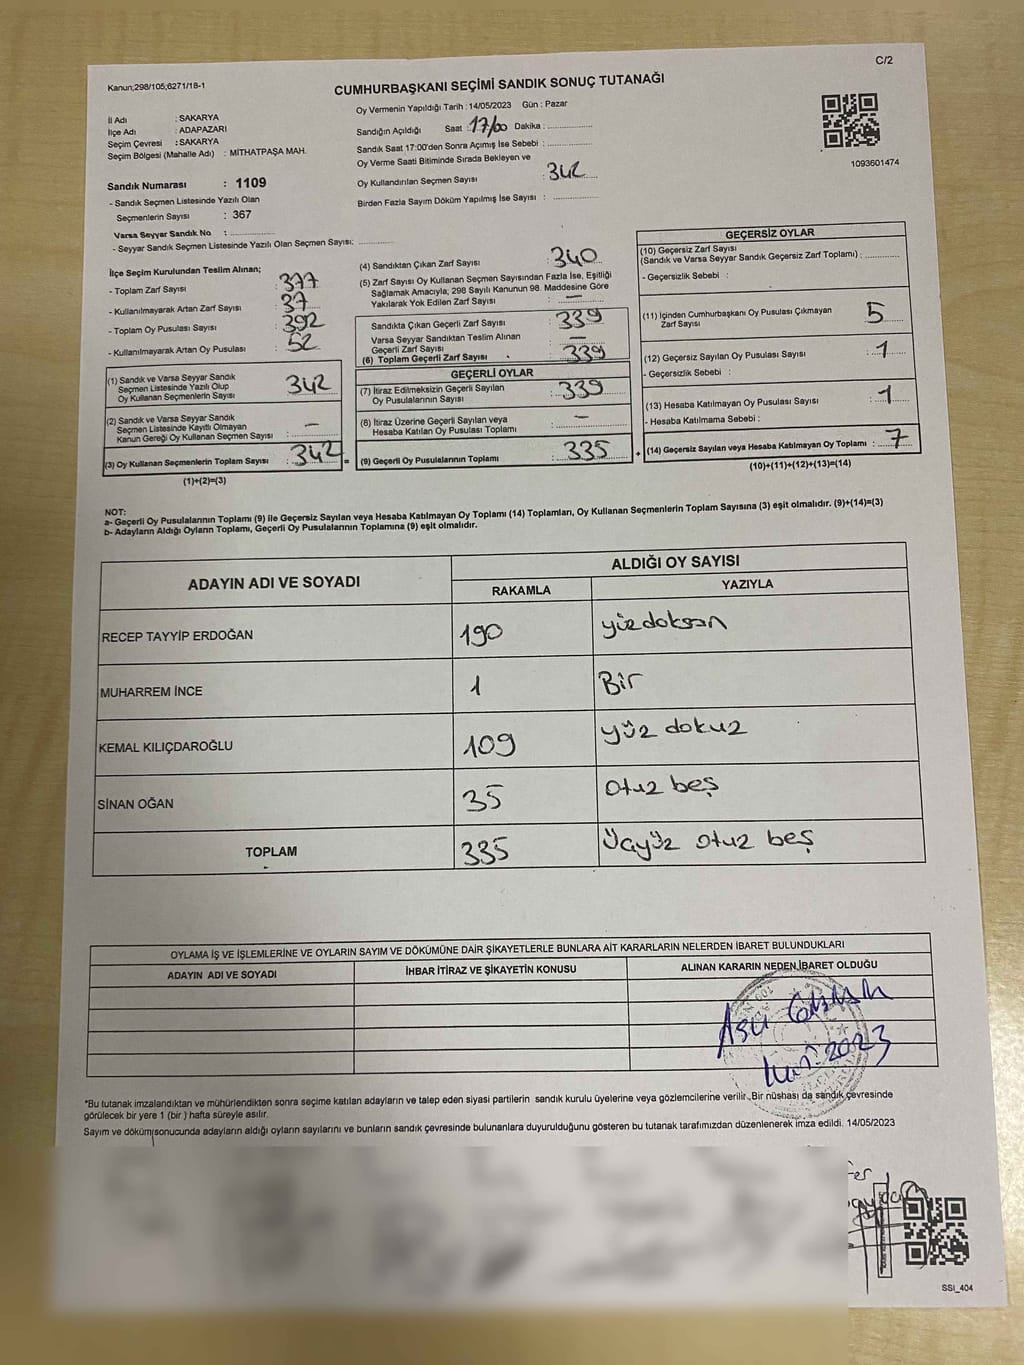 C/2
Kanun;298/105;6271/18-1
CUMHURBAŞKANI SEÇİMİ SANDIK SONUÇ TUTANAĞI
Oy Vermenin Yapıldığı Tarih : 14/05/2023 Gün : Pazar
İl Adı : SAKARYA
İlçe Adı : ADAPAZARI
Seçim Çevresi : SAKARYA
Seçim Bölgesi (Mahalle Adı) : MİTHATPAŞA MAH.
Sandığın Açıldığı Saat : 17/00 Dakika : ..............
Sandık Saat 17:00'den Sonra Açımış İse Sebebi : ..............
Oy Verme Saati Bitiminde Sırada Bekleyen ve
Oy Kullandırılan Seçmen Sayısı : 342
Birden Fazla Sayım Döküm Yapılmış İse Sayısı : ..............
1093601474
Sandık Numarası : 1109
- Sandık Seçmen Listesinde Yazılı Olan
Seçmenlerin Sayısı : 367
Varsa Seyyar Sandık No : ..............
- Seyyar Sandık Seçmen Listesinde Yazılı Olan Seçmen Sayısı: ..............
İlçe Seçim Kurulundan Teslim Alınan;
- Toplam Zarf Sayısı : 377
- Kullanılmayarak Artan Zarf Sayısı : 37
- Toplam Oy Pusulası Sayısı : 392
- Kullanılmayarak Artan Oy Pusulası : 52
(1) Sandık ve Varsa Seyyar Sandık
Seçmen Listesinde Yazılı Olup
Oy Kullanan Seçmenlerin Sayısı : 342
(2) Sandık ve Varsa Seyyar Sandık
Seçmen Listesinde Kayıtlı Olmayan
Kanun Gereği Oy Kullanan Seçmen Sayısı : –
(3) Oy Kullanan Seçmenlerin Toplam Sayısı : 342 =
(1)+(2)=(3)
(4) Sandıktan Çıkan Zarf Sayısı : 340
(5) Zarf Sayısı Oy Kullanan Seçmen Sayısından Fazla İse, Eşitliği
Sağlamak Amacıyla, 298 Sayılı Kanunun 98. Maddesine Göre
Yakılarak Yok Edilen Zarf Sayısı : –
Sandıkta Çıkan Geçerli Zarf Sayısı : 339
Varsa Seyyar Sandıktan Teslim Alınan
Geçerli Zarf Sayısı : –
(6) Toplam Geçerli Zarf Sayısı : 339
GEÇERLİ OYLAR
(7) İtiraz Edilmeksizin Geçerli Sayılan
Oy Pusulalarının Sayısı : 339
(8) İtiraz Üzerine Geçerli Sayılan veya
Hesaba Katılan Oy Pusulası Toplamı : –
(9) Geçerli Oy Pusulalarının Toplamı : 335 +
GEÇERSİZ OYLAR
(10) Geçersiz Zarf Sayısı
(Sandık ve Varsa Seyyar Sandık Geçersiz Zarf Toplamı) : ..............
- Geçersizlik Sebebi :
(11) İçinden Cumhurbaşkanı Oy Pusulası Çıkmayan
Zarf Sayısı : 5
(12) Geçersiz Sayılan Oy Pusulası Sayısı : 1
- Geçersizlik Sebebi :
(13) Hesaba Katılmayan Oy Pusulası Sayısı : 1
- Hesaba Katılmama Sebebi :
(14) Geçersiz Sayılan veya Hesaba Katılmayan Oy Toplamı : 7
(10)+(11)+(12)+(13)=(14)
NOT:
a- Geçerli Oy Pusulalarının Toplamı (9) ile Geçersiz Sayılan veya Hesaba Katılmayan Oy Toplamı (14) Toplamları, Oy Kullanan Seçmenlerin Toplam Sayısına (3) eşit olmalıdır. (9)+(14)=(3)
b- Adayların Aldığı Oyların Toplamı, Geçerli Oy Pusulalarının Toplamına (9) eşit olmalıdır.
ADAYIN ADI VE SOYADI ALDIĞI OY SAYISI
RAKAMLA YAZIYLA
RECEP TAYYİP ERDOĞAN 190 yüzdoksan
MUHARREM İNCE 1 Bir
KEMAL KILIÇDAROĞLU 109 yüz dokuz
SİNAN OĞAN 35 Otuz beş
TOPLAM 335 Üçyüz otuz beş
OYLAMA İŞ VE İŞLEMLERİNE VE OYLARIN SAYIM VE DÖKÜMÜNE DAİR ŞİKAYETLERLE BUNLARA AİT KARARLARIN NELERDEN İBARET BULUNDUKLARI
ADAYIN ADI VE SOYADI İHBAR İTİRAZ VE ŞİKAYETİN KONUSU ALINAN KARARIN NEDEN İBARET OLDUĞU
Aslı
2023
*Bu tutanak imzalandıktan ve mühürlendikten sonra seçime katılan adayların ve talep eden siyasi partilerin sandık kurulu üyelerine veya gözlemcilerine verilir. Bir nüshası da sandık çevresinde
görülecek bir yere 1 (bir ) hafta süreyle asılır.
Sayım ve döküm sonucunda adayların aldığı oyların sayılarını ve bunların sandık çevresinde bulunanlara duyurulduğunu gösteren bu tutanak tarafımızdan düzenlenerek imza edildi. 14/05/2023
SSI_404